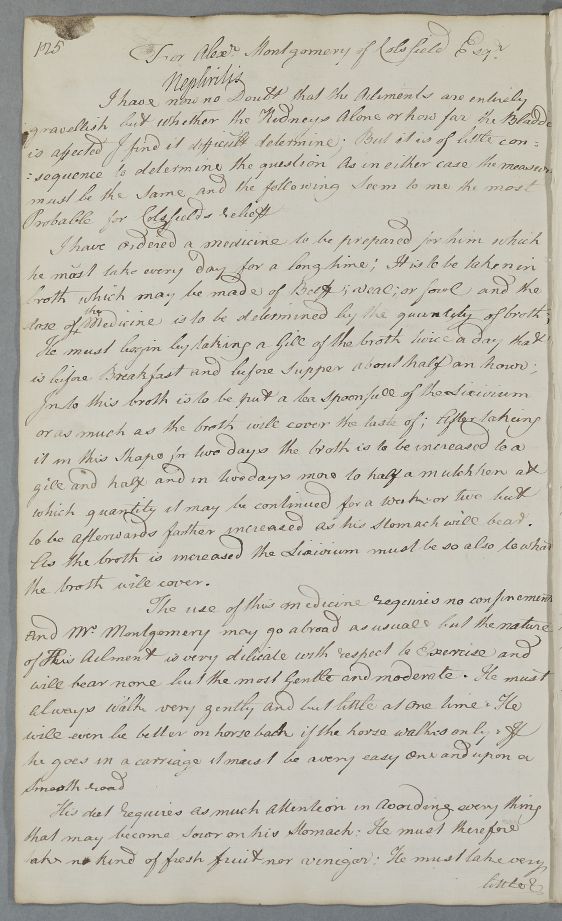 125
For Alexr. Montgomery of Colsfield Esqr.
Nephritis
I have now no Doubt that the Ailments are entirely
gravellish but whether the Kidneys Alone or how far the Bladde
is affected I find it difficult determine; But it is of little con=
=sequence to determine the question As in either case the measures
must be the Same and the following Seem to me the most
Probable for Colsfields relieff
I have ordered a medicine to be prepared for him which
he must take every day for a long time; It is to be taken in
broth which may be made of Beeff; veal; or fowl and the
dose of the Medicine is to be determined by the quantity of broth;
He must begin by taking a Gill of the broth twice a day that
is before Breakfast and before Supper about half an hour;
In to this broth is to be put a tea spoonfull of the Lixivium
or as much as the broth will cover the taste of; After taking
it in this Shape for two days the broth is to be increased to a
gill and half and in two days more to half a mutchken at
which quantity it may be continued for a week or two but
to be afterwards farther increased as his Stomach will bear.
As the broth is increased the Lixivium must be so also to what
the broth will cover.
The use of this medicine requires no confinement
And Mr. Montgomery may go abroad as usuall but the nature
of this Ailment is very delicate with respect to Exercise and
will bear none but the most Gentle and moderate. He must
Always walk very gently And but little at one time. He
will even be better on horse back if the horse walks only. If
he goes in a carriage it must be a very easy One and upon a
Smooth road
His diet requires As much Attention in Avoiding every thing
that may become Sour on his Stomach: He must therefore
take no kind of fresh fruit nor vinigar: He must take very
little